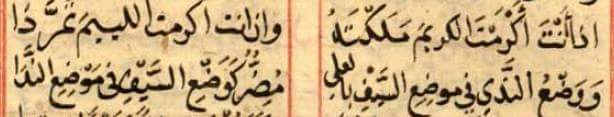 اذا انْتَ اَكْرَمْتَ الكريمَ مَلَكْتَهُ وان انت اكرمت اللىٔيمَ تمرَّدَا
وَوَضْعُ النَّدَي في موضِع السَّيْفِ بالعلي مُضِرٌّ كَوَضْعِ السَّيْفِ في مَوْضِعِ النَّدَا